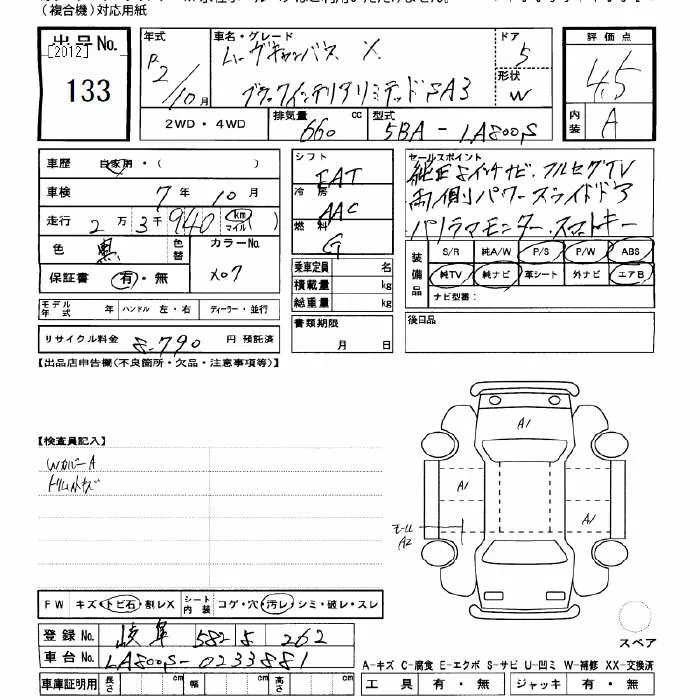 (複合機)対応用紙
出品No.
[2012]
133
年式
R2/10月
車名・グレード
ムーヴキャンバス X
ブラックインテリアリミテッドSA3
ドア
5
形状
W
2WD・4WD
排気量 660 cc
型式 5BA-LA800S
評価点
4.5
内装
A
車歴 自家用・( )
車検 7年10月
走行 2万3千940 km マイル( )
色 黒 色替
カラーNo. X07
保証書 有・無
モデル年式 年 ハンドル 左・右 ディーラー・並行
リサイクル料金 8,790 円 預託済
シフト
IAT
冷房
AAC
燃料
G
乗車定員 名
積載量 kg
総重量 kg
書類期限
月 日
セールスポイント
純正8インチナビ、フルセグTV
両側パワースライドドア
パノラマモニター、スマートキー
装備品
S/R 純A/W P/S P/W ABS
純TV 純ナビ 革シート 外ナビ エアB
ナビ型番:
後日品
【出品店申告欄(不良箇所・欠品・注意事項等)】
【検査員記入】
WカバーA
トリムキズ
A1
A1
A1
モール
A2
FW キズ・トビ石・割レX シート内装 コゲ・穴・汚レ・シミ・破レ・スレ
登録No. 岐阜 582 を 262
車台No. LA800S-0233881
車庫証明用 長さ cm 幅 cm 高さ cm
スペア
A-キズ C-腐食 E-エクボ S-サビ U-凹ミ W-補修 XX-交換済
工具 有・無 ジャッキ 有・無